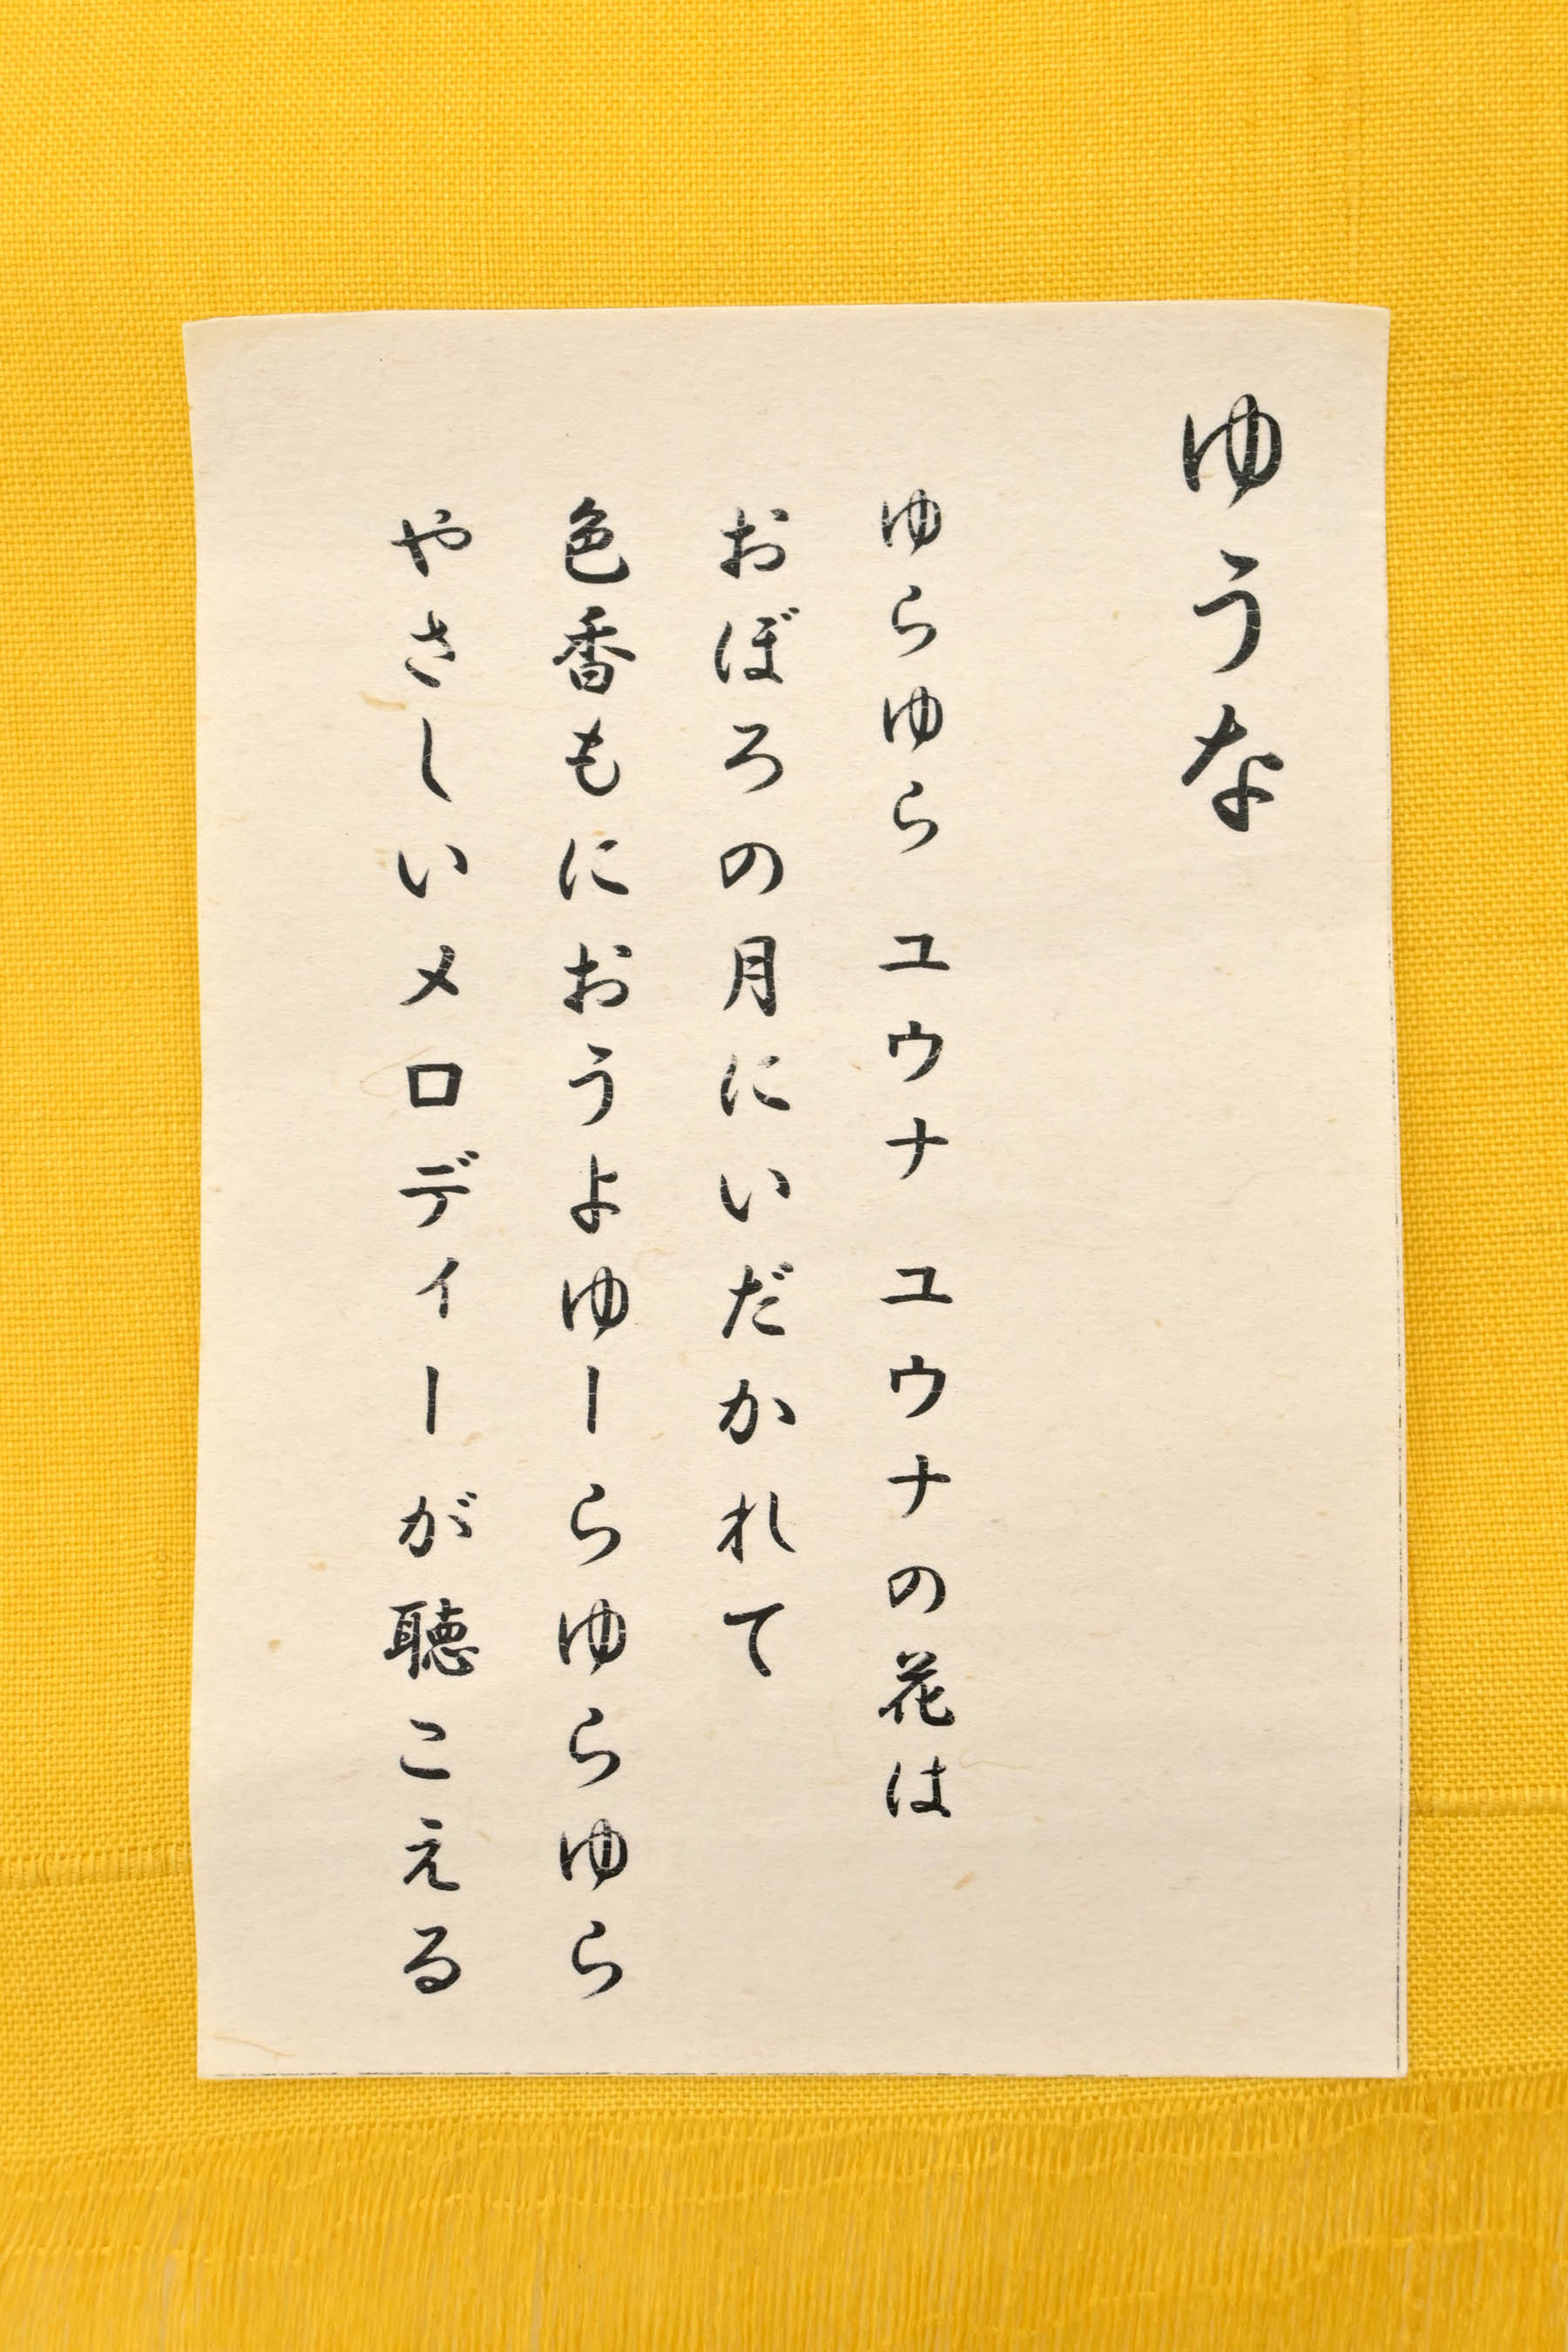 ゆうな
ゆらゆら ユウナ ユウナの花は
おぼろの月にいだかれて
色香もにおうよゆーらゆらゆら
やさしいメロディーが聴こえる